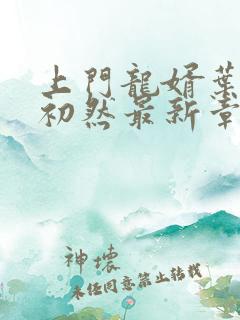 上門龍婿葉
初然最新章
神壞
未經同意禁止轉載